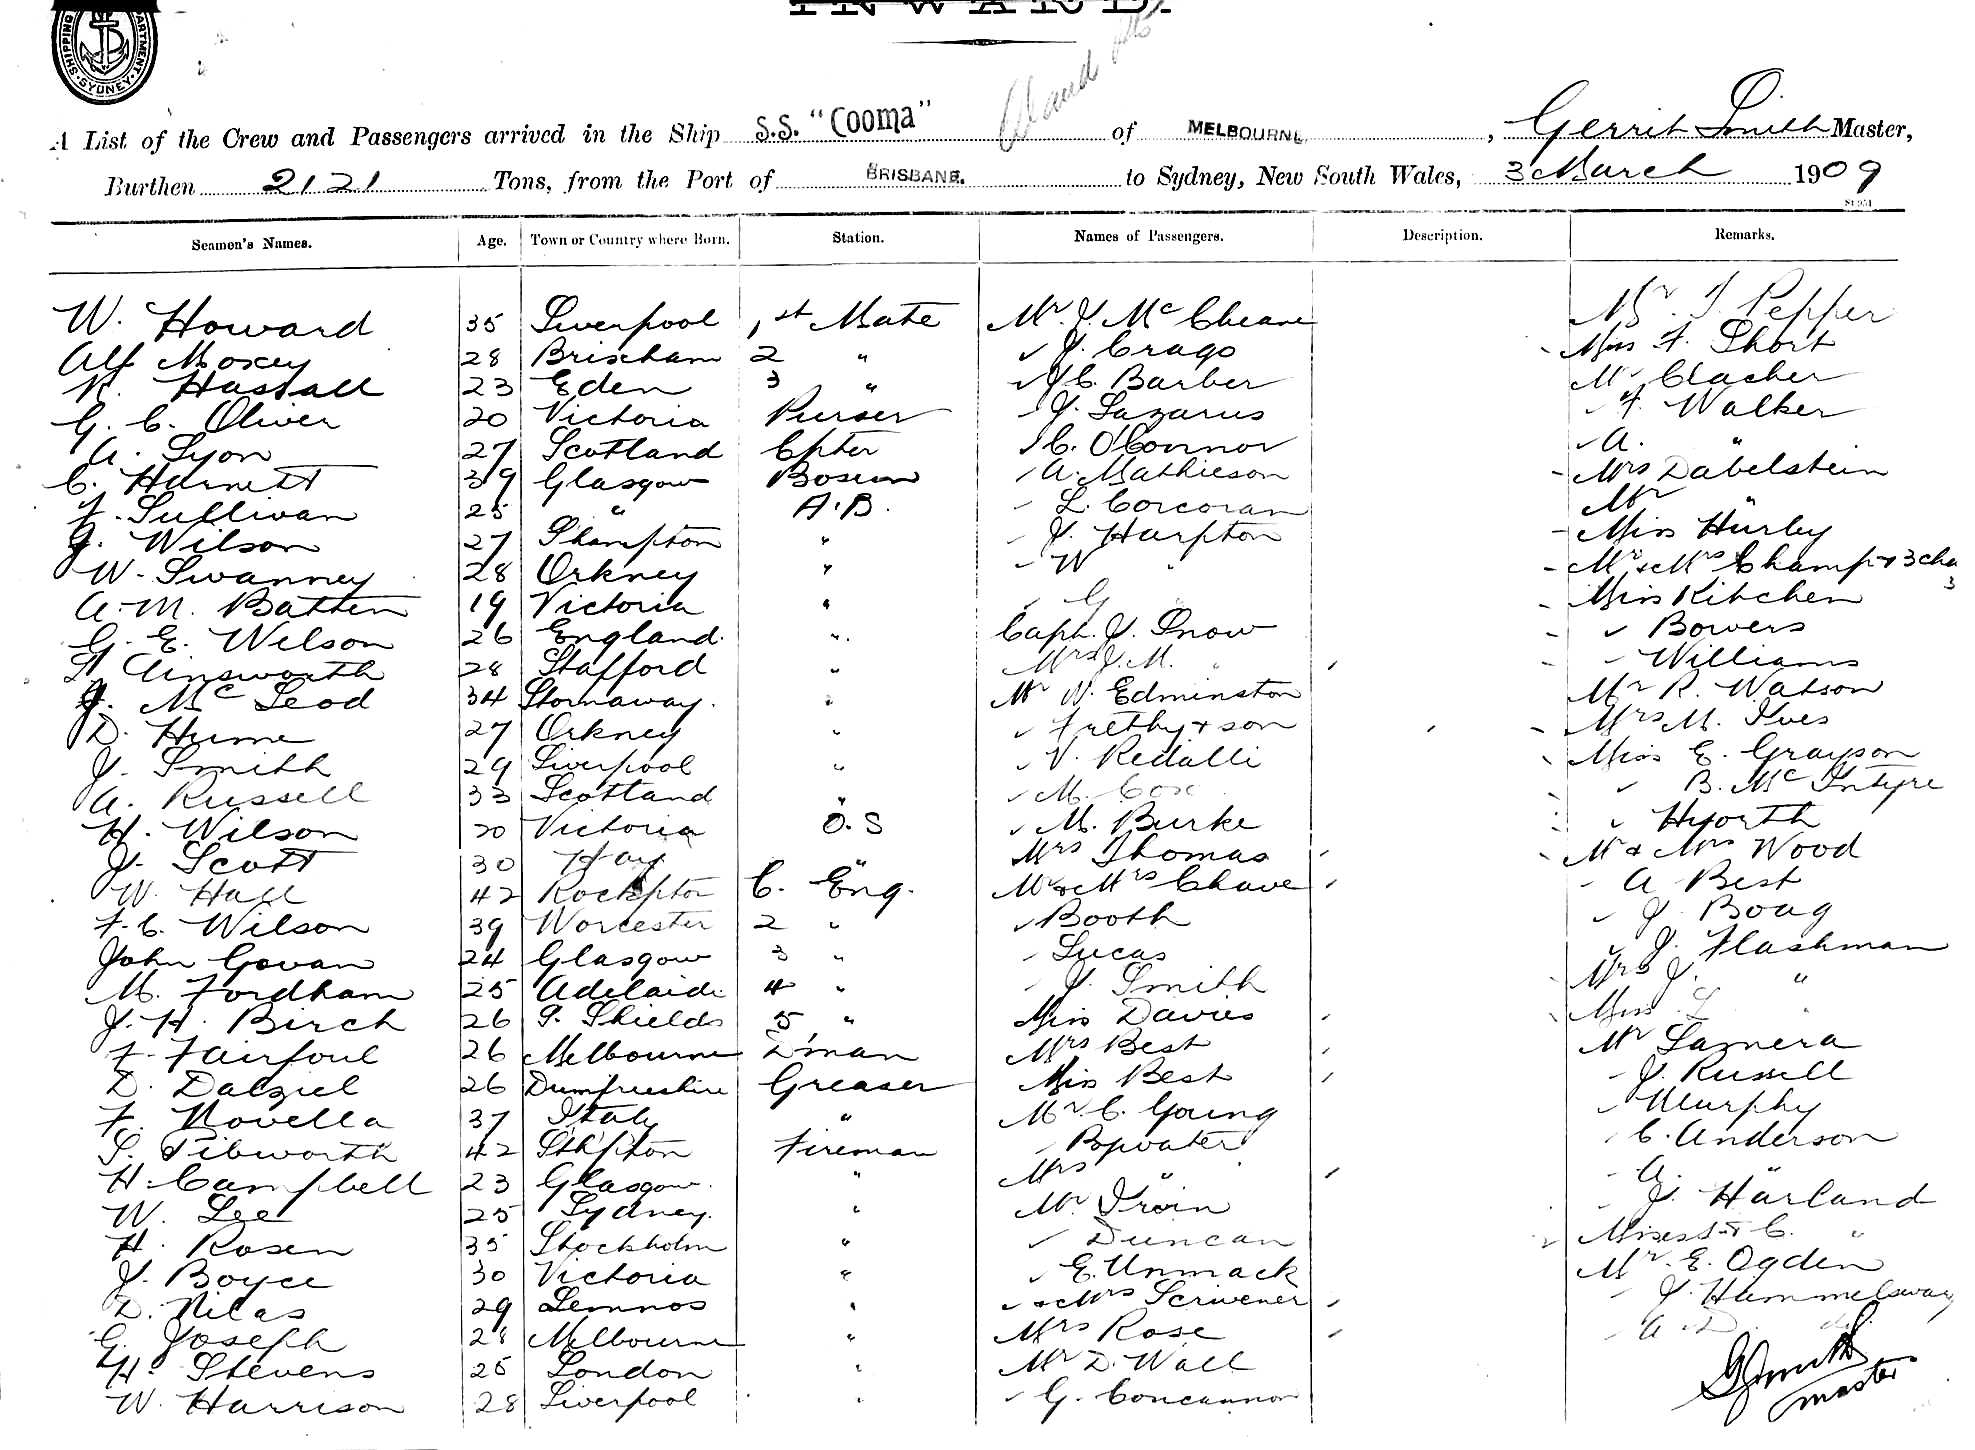 SHIPPING DEPARTMENT SYDNEY
INWARD.
A List of the Crew and Passengers arrived in the Ship S.S. "Cooma" of MELBOURNE, Gerrit Smith Master,
Burthen 2121 Tons, from the Port of BRISBANE. to Sydney, New South Wales, 3 March 1909
Seamen's Names. Age. Town or Country where Born. Station. Names of Passengers. Description. Remarks.
W. Howard 35 Liverpool 1st Mate Mr J. McCheane Mr. J. Pepper
Alf Moxey 28 Brixham 2 " J. Crago Miss F. Short
R. Hassall 23 Eden 3 " J C. Barber Mr Clacher
G. C. Oliver 20 Victoria Purser J. Lazarus F. Walker
A. Lyon 27 Scotland Cpter C. O'Connor A. "
C. Harnett 39 Glasgow Bosun A. Mathieson Mrs Dabelstein
F. Sullivan 25 " A.B. L. Corcoran Mr "
J. Wilson 27 Shampton " J. Harpton Miss Hurley
W. Swanney 28 Orkney " W " Mr & Mrs Champ + 3 chn
A. M. Batten 19 Victoria " G Miss Kitchen 3
G. E. Wilson 26 England. " Capt. J. Snow Bowers
H Ainsworth 28 Stafford " Mrs J. M. " Williams
J. McLeod 34 Stornaway. " Mr W. Edminston Mr R. Watson
D. Hume 27 Orkney " Frethy + son Mrs M. Ives
J. Smith 29 Liverpool " V. Redalli Miss E. Grayson
A. Russell 33 Scotland " M. Cox B. McIntyre
H. Wilson 20 Victoria O.S M. Burke Hyorth
J. Scott 30 Hay " Mrs Thomas Mr & Mrs Wood
W. Hall 42 Rockpton C. Eng. Mr & Mrs Chave A Best
F. C. Wilson 39 Worcester 2 " Booth J. Boag
John Govan 24 Glasgow 3 " Lucas J. Flashman
M. Fordham 25 Adelaide 4 " J. Smith Mrs J. "
J. H. Birch 26 S. Shields 5 " Miss Davies Miss L
F. Fairfoul 26 Melbourne D'man Mrs Best Mr Lamera
D. Dalziel 26 Dumfrieshire Greaser Miss Best J. Russell
F. Novella 37 Italy " Mr C. Young Murphy
S. Tibworth 42 Sth'pton Fireman Bopvater C. Anderson
H. Campbell 23 Glasgow. " Mrs " A. "
W. Lee 25 Sydney. " Mr Irvin J. Harland
H. Rosen 35 Stockholm " Duncan Misses & C. "
J. Boyce 30 Victoria " E. Unmack Mr. E. Ogden
D. Nilas 29 Lemnos " & Mrs Scrivener J. Hummelsway
G. Joseph 28 Melbourne " Mrs Rose A
H. Stevens 25 London " Mr D. Wall
W. Harrison 28 Liverpool " G. Concannon
G Smith
master